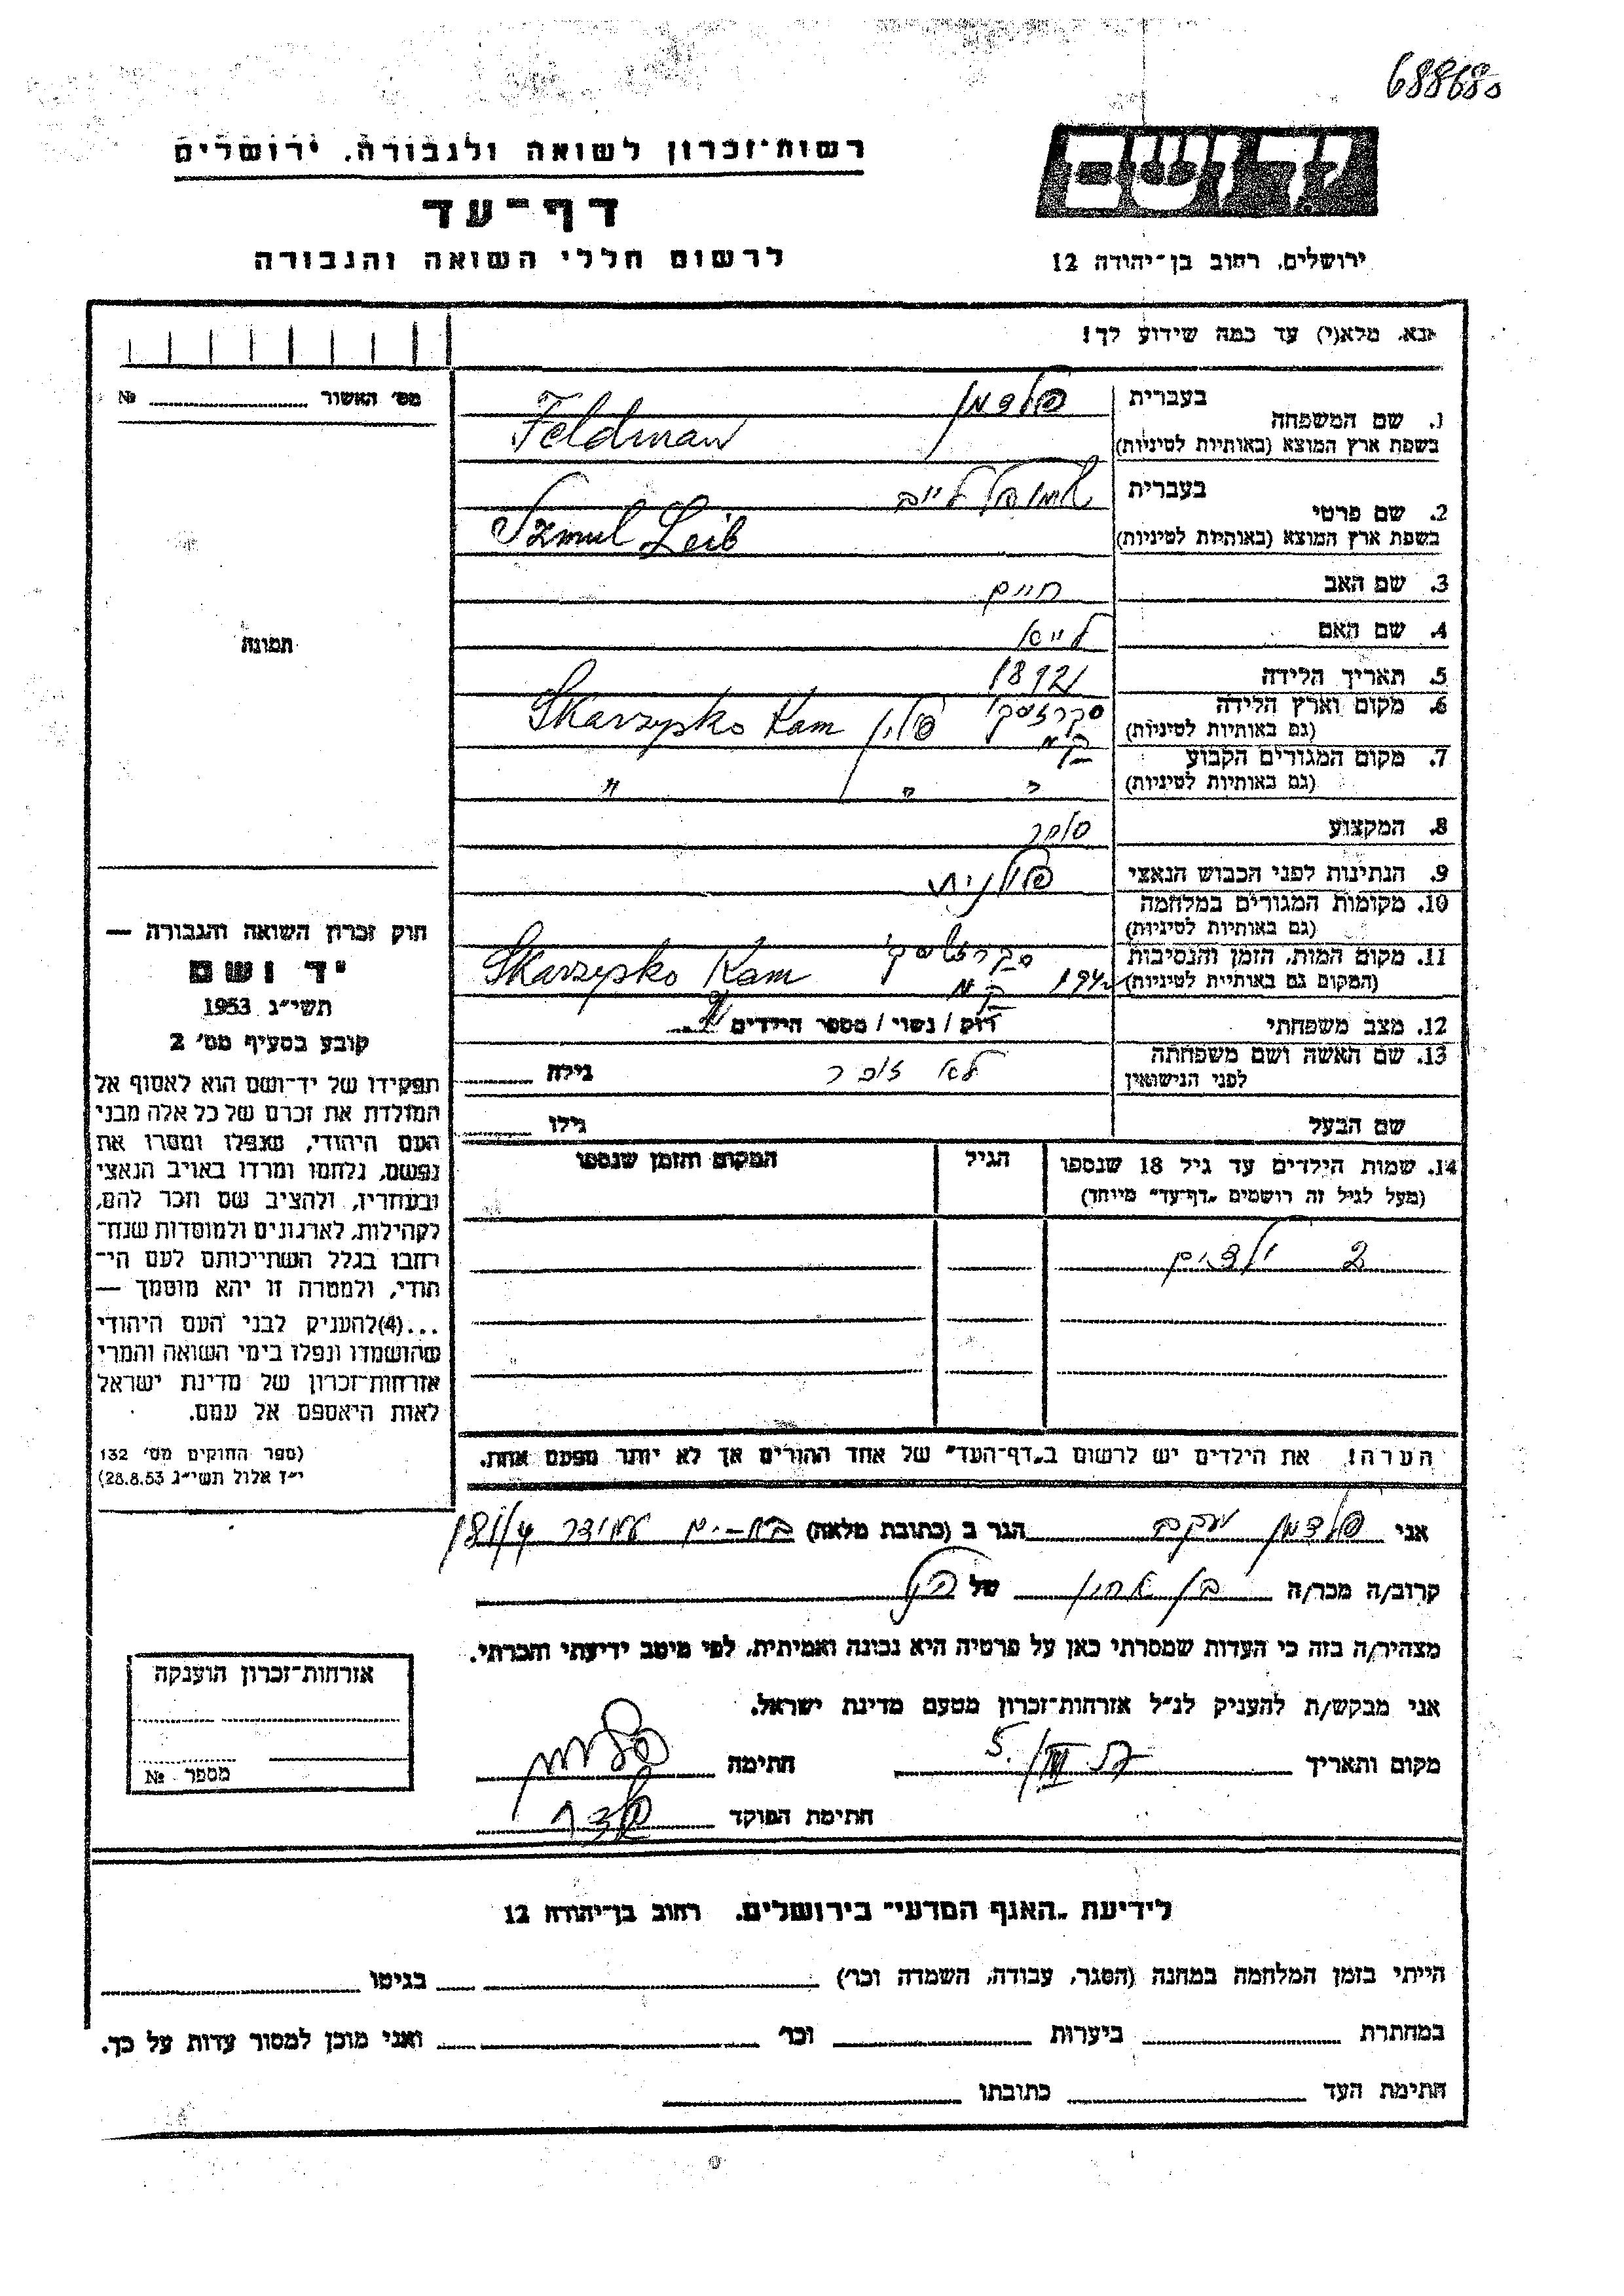 688680
רשות-זכרון לשואה ולגבורה, ירושלים
יד ושם
דף-עד
לרשום חללי השואה והגבורה
ירושלים, רחוב בן-יהודה 12
נא, מלא(י) עד כמה שידוע לך!
מס׳ האשור № 
תמונה
חוק זכרון השואה והגבורה —
יד ושם
תשי״ג 1953
קובע בסעיף מס׳ 2
תפקידו של יד-ושם הוא לאסוף אל
המולדת את זכרם של כל אלה מבני
העם היהודי, שנפלו ומסרו את
נפשם, נלחמו ומרדו באויב הנאצי
ובעוזריו, ולהציב שם וזכר להם,
לקהילות, לארגונים ולמוסדות שנח-
רבו בגלל השתייכותם לעם הי-
הודי, ולמטרה זו יהא מוסמך —
...(4)להעניק לבני העם היהודי
שהושמדו ונפלו בימי השואה והמרי
אזרחות-זכרון של מדינת ישראל
לאות היאספם אל עמם.
(ספר החוקים מס׳ 132
י״ז אלול תשי״ג 28.8.53)
בעברית פלדמן
1. שם המשפחה
בשפת ארץ המוצא (באותיות לטיניות) Feldman
בעברית שמואל לייב
2. שם פרטי
בשפת ארץ המוצא (באותיות לטיניות) Szmul Leib
3. שם האב חיים
4. שם האם
5. תאריך הלידה 1892
6. מקום וארץ הלידה סקרז'יסקו קמ פולין Skarzysko Kam
(גם באותיות לטיניות)
7. מקום המגורים הקבוע " " "
(גם באותיות לטיניות)
8. המקצוע סוחר
9. הנתינות לפני הכבוש הנאצי פולנית
10. מקומות המגורים במלחמה
(גם באותיות לטיניות)
11. מקום המות, הזמן והנסיבות סקרז'יסקו קמ Skarzysko Kam
(המקום גם באותיות לטיניות) 1942
12. מצב משפחתי רוק / נשוי / מספר הילדים 2
13. שם האשה ושם משפחתה לפני הנישואין לא זוכר גילה
שם הבעל גילו
14. שמות הילדים עד גיל 18 שנספו הגיל המקום והזמן שנספו
(מעל לגיל זה רושמים „דף-עד״ מיוחד)
2 ילדים
הערה! את הילדים יש לרשום ב„דף-העד״ של אחד ההורים אך לא יותר מפעם אחת.
אני פלדמן יעקב הגר ב (כתובת מלאה) בת-ים עמידר 181/4
קרוב/ה מכר/ה בן אחיו של הנ"ל
מצהיר/ה בזה כי העדות שמסרתי כאן על פרטיה היא נכונה ואמיתית, לפי מיטב ידיעתי והכרתי.
אני מבקש/ת להעניק לנ״ל אזרחות-זכרון מטעם מדינת ישראל.
מקום ותאריך 5./III חתימה
חתימת הפוקד
אזרחות-זכרון הוענקה
מספר №
לידיעת „האגף המדעי״ בירושלים. רחוב בן-יהודה 12
הייתי בזמן המלחמה במחנה (הסגר, עבודה, השמדה וכו׳) בגיטו
במחתרת ביערות וכו׳ ואני מוכן למסור עדות על כך.
חתימת העד כתובתו